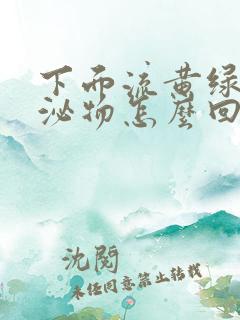 下面流黄绿
泌物怎麽回
沈阅
未经同意禁止转载